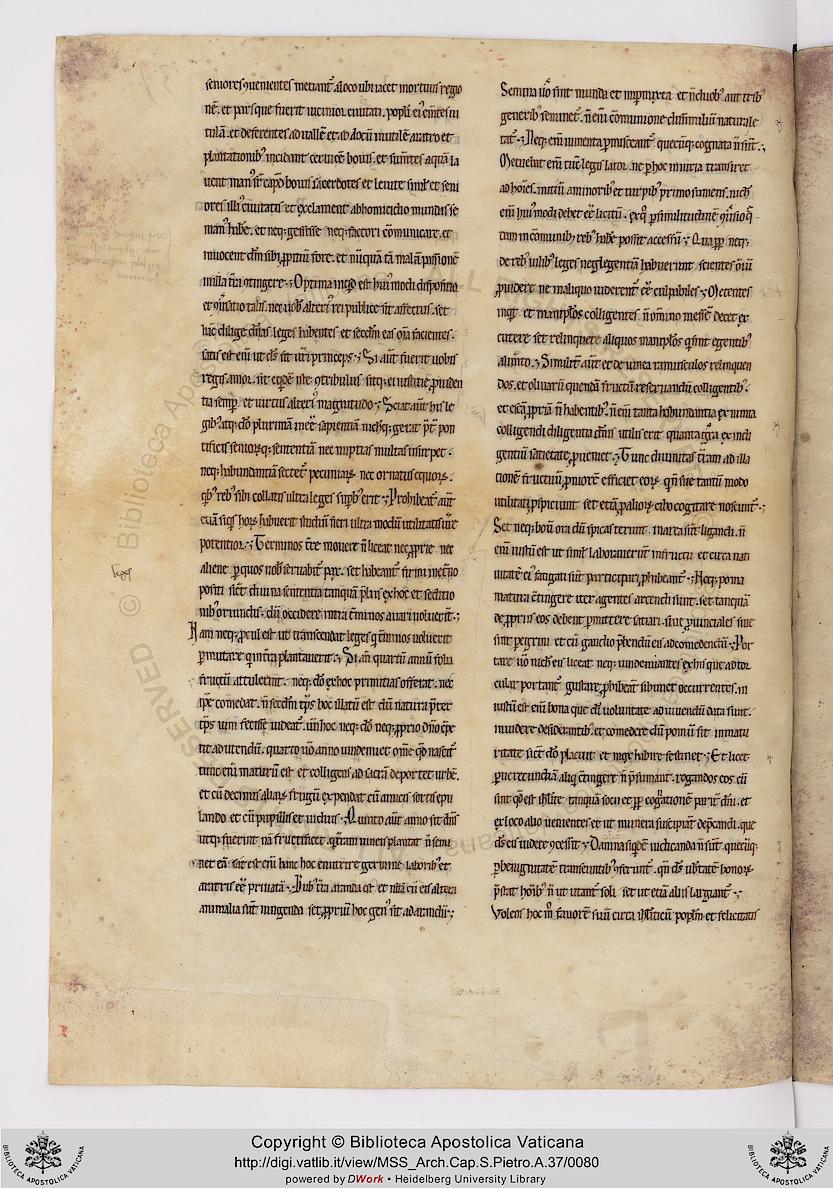 seniores ꝯuenientes metiant᷑ a loco ubi iacet mortuus regio
nē. et pars que fuerit uicinior ciuitati. popl̄i ei᷑ emētes ui
tulā. et deferentes ad uallē et ad locū inutilē aratro et
plantationib᷒ incidant ceruicē bouis. et sumētes aquā la
uent man᷒ sr̄ capd̄ bouis sacerdotes et leuite simĺ et seni
ores illi᷒ ciuitatis et exclament ab homicidio mundas se
man᷒ habē. et neq; gessisse neq; factori cōmunicare. et
inuocent dm̄ sibi ꝓpitiū fore. et nūquā tā malā passionē
in illa t̄ra ꝯtingere.
et ꝯuersatio talis. nec uob᷒ alteri᷒ rei publice sit affectus. set
hāc diligite dn̄as leges habentes et scdm̄ eas om̄a facientes.
satis est eni᷑ ut ds̄ sit ur̄i princeps; Si aut̄ fuerit uobis
regis amor. sit eqdē iste ꝯtribulus sitq; ei iustitie ꝓuiden
tia semp̄. et uirtus alteri᷒ magnitudo; Sciat aut̄ his le
gib᷒ atq; dō plurimā inee᷑ sapientiā nichq; gerat p̄t pon
tificis seniorūq; sententiā nec nuptias multas usurpet.
neq; habundantiā sectet᷑ pecuniarꝝ nec ornatus equorꝝ.
qb᷒ reb᷒ sibi collatis ultra leges supb᷒ erit; Prohibeat᷑ aut̄
etiā siqs horꝝ habuerit studiū fieri ultra modū utilitatis ur̄e
potentior; Terminos tr̄e mouere n̄ liceat nec ꝓprie nec
aliene per quos nob̄ seruabit᷑ pax. set habeant᷑ firmi in et̄no
positi sicut diuina sententia tanquā pluris ex hoc et seditio
nib᷒ oriundis. dū accidere intra t̄minos auari uoluerit̄;
Nam neq; pcul est ut transcendat leges q t̄minos uoluerit
p̄mutare q intra plantauerit; Si añ quartū annū folia
fructū attulerint. neq; dō ex hoc primitias offerat. nec
ipe᷑ comedat. n̄ scdm̄ tp̄s hoc illatū est dū natura p̄ter
tp̄s uim fecisse uideat᷑.
quarto uō anno uindemiet om̄e qd nascet᷑
tunc eni᷑ maturū est et colligens ad sacrā deportet urbē.
et cū decimis aliarꝝ frugū expendat cū amicis sortis epu
lando et cū pupillis et uiduis; Quinto aut̄ anno sit dn̄s
utq; fuerint nā fructificet. q t̄ram uineis plantat n̄ semi
net eā. sat est eni᷑ hanc hoc enutrire germine laborib᷒ et
aratris ee᷑ priuatā; Bub᷒ t̄ra aranda est et nulla cū eis altera
animalia sunt iungenda set ꝓpriū hoc gen᷒ sit ad arandū;
Semina uō sint munda et impmixta et n̄ duob᷒ aut trib᷒
generib᷒ seminet᷑. n̄ eni᷑ cōmunione dissimiliū naturale
tat᷑; Neq; eni᷑ iumenta pmisceant᷑ quecūq; cognata n̄ sūt;
Metuebat eni᷑ tūc legis lator. ne p hoc iniuria transiret
ad hoīes. initiū a minorib᷒ et turpib᷒ primo sumens. nich̄
eni᷑ hui᷒ modi debet ee᷑ licitū. ex q p similitudinē ꝯuersio q̄
dam in cōmunib᷒ reb᷒ habē possit accessū; Quap̄ neq;
de reb᷒ uilib᷒ leges neglegentiā habuerunt scientes om̄iū
ꝓuidere ne in aliquo uiderent᷑ ee᷑ culpabiles; Metentes
inqt et manipl̄os colligentes n̄ om̄ino messē decet ex
cutere set relinquere aliquos manipl̄os q sint egentib᷒
alim̄to; Similit᷑ aut̄ et de uinea ramusculos relinquen
dos. et oliuarū quendā fructū reseruandū colligentib᷒.
et escā ꝓpriā n̄ habentib᷒. n̄ eni᷑ tanta habundantia ex nimia
colligendi diligentia dn̄is utilis erit quanta gr̄a ex indi
gentiū satietate ꝓueniet; Tunc diuinitas t̄ram ad illa
tionē fructuū ꝓniorē efficiet eorꝝ qn̄ sue tantū modo
utilitati ꝓspiciunt set etiā ꝓ aliorꝝ cibo cogitare noscunt᷑;
Set neq; boū ora dū spicas terunt. in area sūt liganda. n̄
eni᷑ iustū est ut simĺ laborauerunt in fructu et circa nati
uitatē ei᷒ fatigati sūt participari phibeant᷑; Neq; poma
matura ꝯtingere iter agentes arcendi sunt. set tanquā
de ꝓpriis eos debent pmittere satiari. siue ꝓuinciales siue
sint pegrini et cū gaudio p̄bendū eis ad comedendū; Por
tare uō nich̄ eis liceat. neq; uindemiantes ex his que ad tor
cular portant᷑ gustare phibeat᷑ sibimet occurrentes. in
iustū est eni᷑ bona que ds̄ uoluntate ad uiuendū data sunt.
inuidere desiderantib᷒. et comedere dū pomū sit in matu
ritate sicut dō placuit et mox habire festinet; Et licet
p uerecundiā aliq ꝯtingere n̄ p̄sumant. rogandos eos cū
sint qd̄ est isrl̄ite tanquā socii et ꝓp̄ cognationē parit᷑ dn̄i. et
ex loco alio uenientes et ut munera suscipiant dep̄candi. que
ds̄ eis uidere ꝯcessit; Damna siqdē iudicanda n̄ sunt. quecūq;
p benignitatē transeuntib᷒ offerunt᷑. qn̄ ds̄ ub᷑tatē bonorꝝ
p̄stat hoīb᷒ n̄ ut utant᷑ soli set ut etiā aliis largiant᷑;
Volens hoc m̄ fauorē suū circa isrl̄iticū popl̄m et felicitatis
Copyright © Biblioteca Apostolica Vaticana
http://digi.vatlib.it/view/MSS_Arch.Cap.S.Pietro.A.37/0080
powered by DWork • Heidelberg University Library